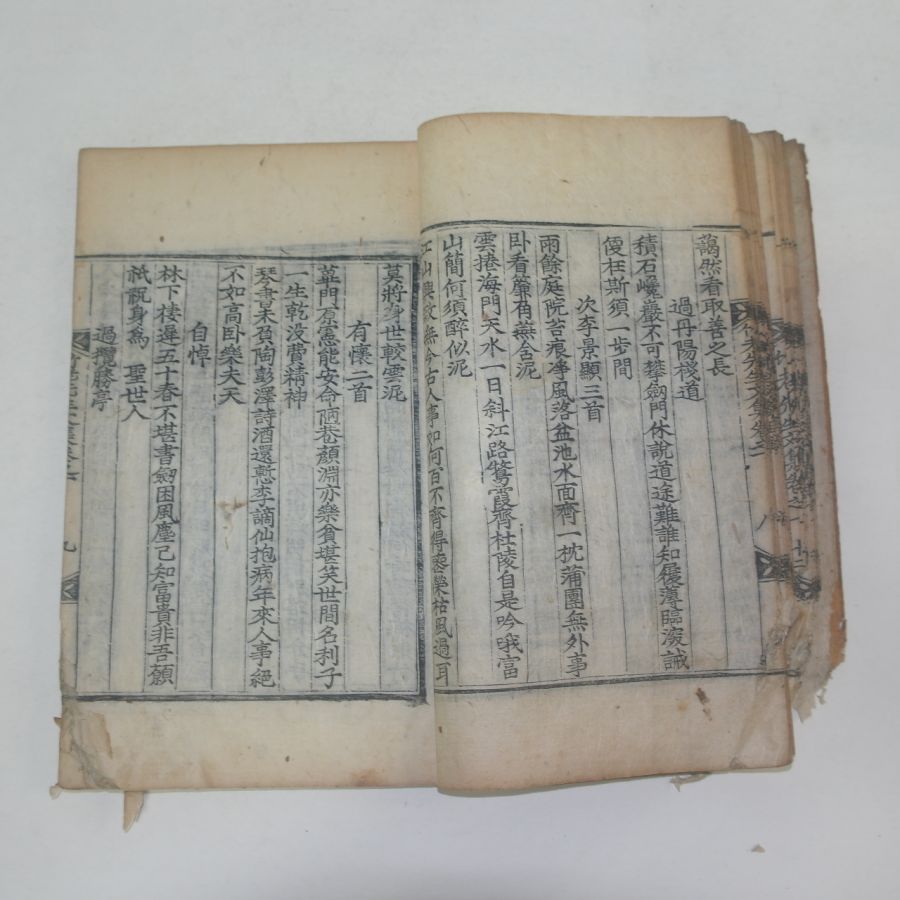 藹然看取善之長
過丹陽棧道
積石巉巖不可攀劒門休說道途難誰知履薄臨深誡
儘在斯須一步間
次李景顯三首
雨餘庭院苔痕凈風落盆池水面齊一枕蒲團無外事
卧看簾角燕含泥
雲捲海門天水一日斜江路鶩霞齊杜陵自是吟哦富
山簡何須醉似泥
江山興致無今古人事如何百不齊得喪榮枯風過耳
莫將身世較雲泥
有懷二首
蓽門原憲能安命陋巷顔淵亦樂貧堪笑世間名利子
一生乾没費精神
琴書未負陶彭澤詩酒還慙李謫仙抱病年來人事絕
不如高卧樂夫天
自悼
林下棲遲五十春不堪書劒困風塵已知富貴非吾願
秪祝身爲 聖世人
過攬勝亭
九